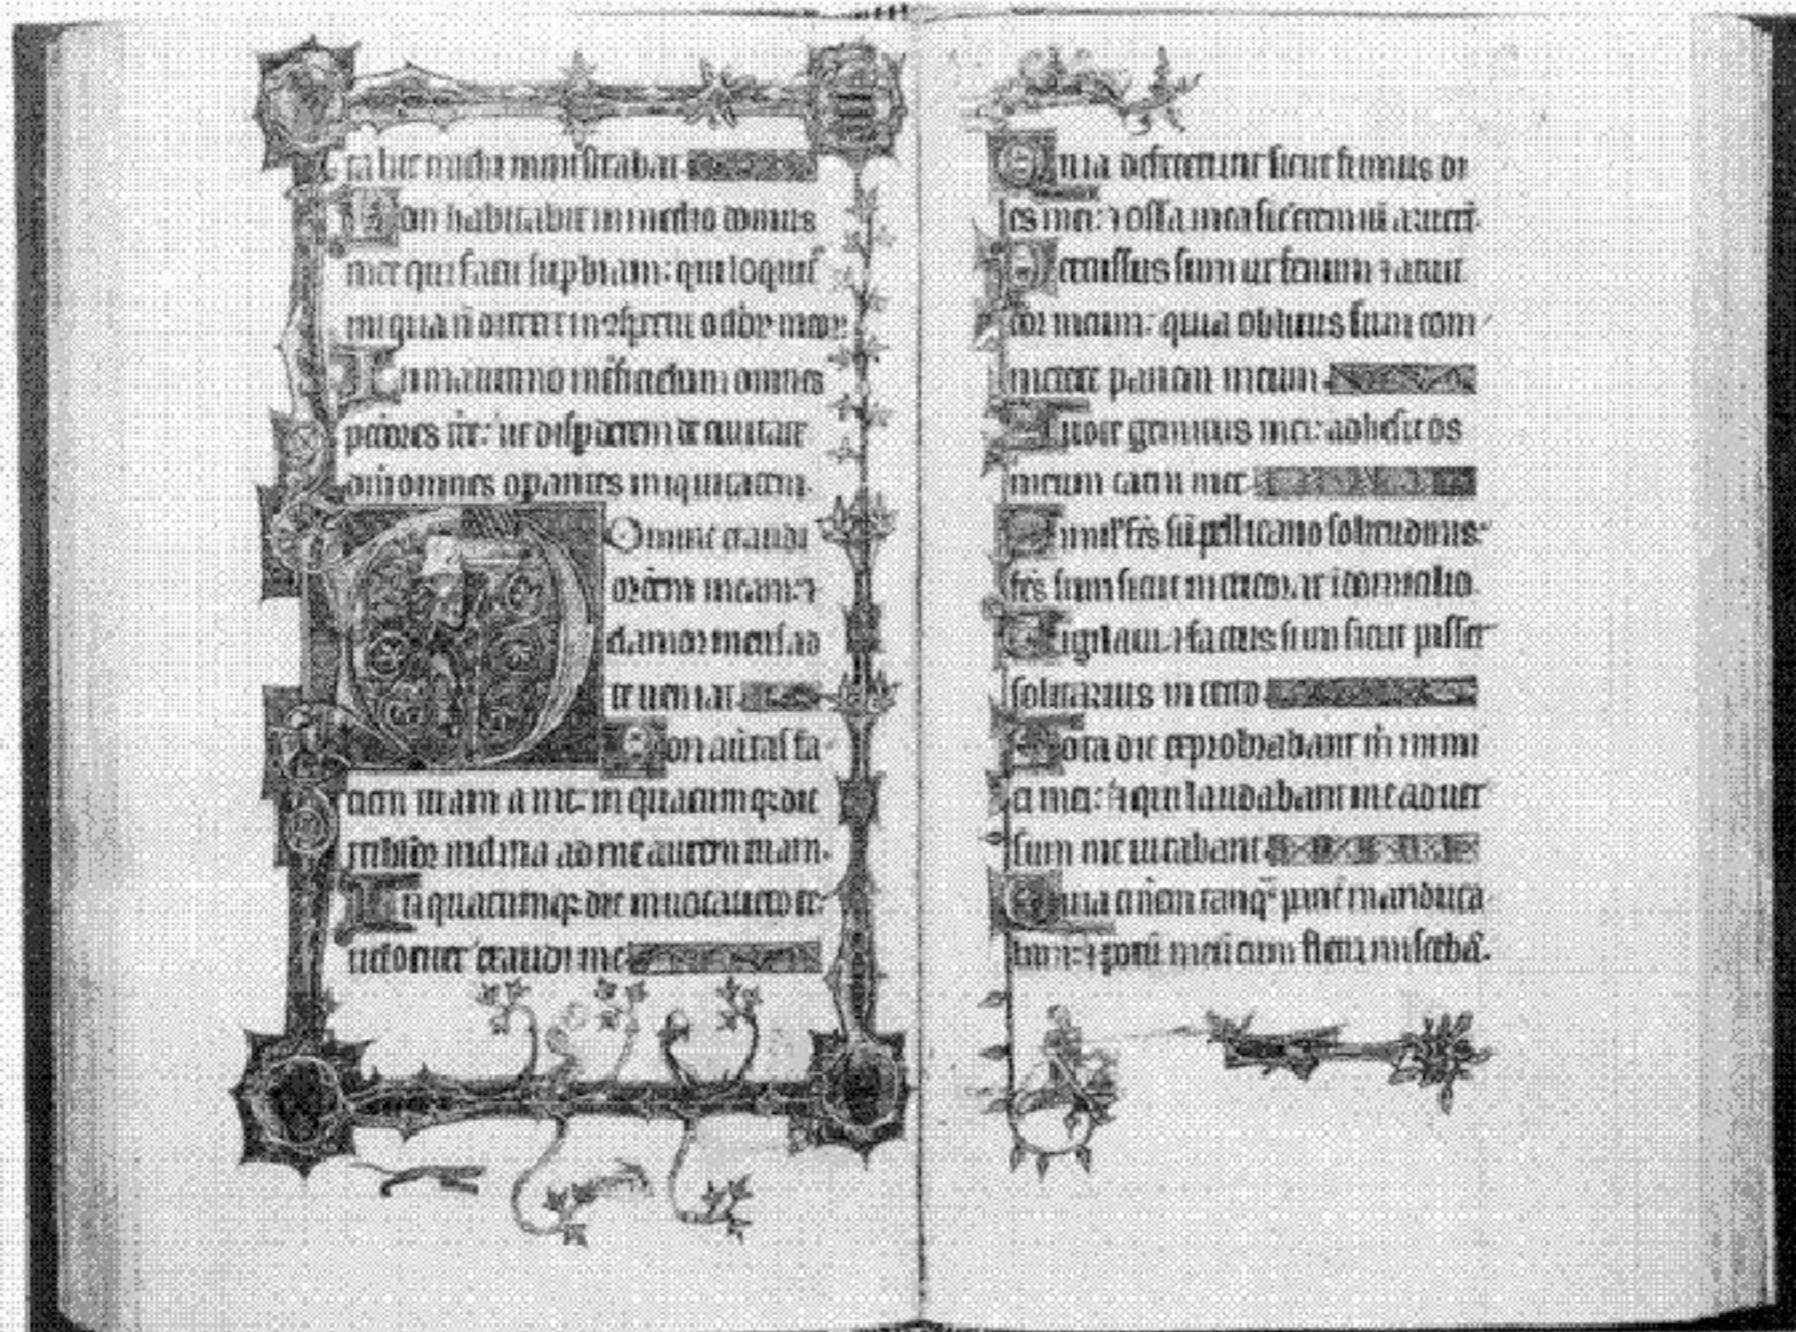 ta hic michi ministrabat.
Non habitabit in medio domus
mee qui facit supbiam: qui loquit
iniqua n direxit in cspectu oclor meor
In matutino interficiebam omnes
pctores tre: ut disperdem de ciuitate
dni omnes opantes iniquitatem.
Domine exaudi
oroem meam: 7
clamor meus ad
te ueniat.
Non auertas fa
ciem tuam a me: in quacumq; die
tribulor inclina ad me aurem tuam.
In quacumq; die inuocauero te:
uelociter exaudi me
Quia defecerunt sicut fumus di
es mei: 7 ossa mea sic cremiu aruert
Percussus sum ut fenum 7 aruit
cor meum: quia oblitus sum com
medere panem meum.
A uoce gemitus mei: adhesit os
meum carni mee.
Simil' fcs su pellicano solitudinis:
fcs sum sicut nicticorax i domicilio.
Uigilaui. 7 factus sum sicut passer
solitarius in tecto.
Tota die exprobrabant m inimi
ci mei: 7 qui laudabant me aduer
sum me iurabant.
Quia cinem tanq pane manduca
bam: 7 potu meu cum fletu misceba.